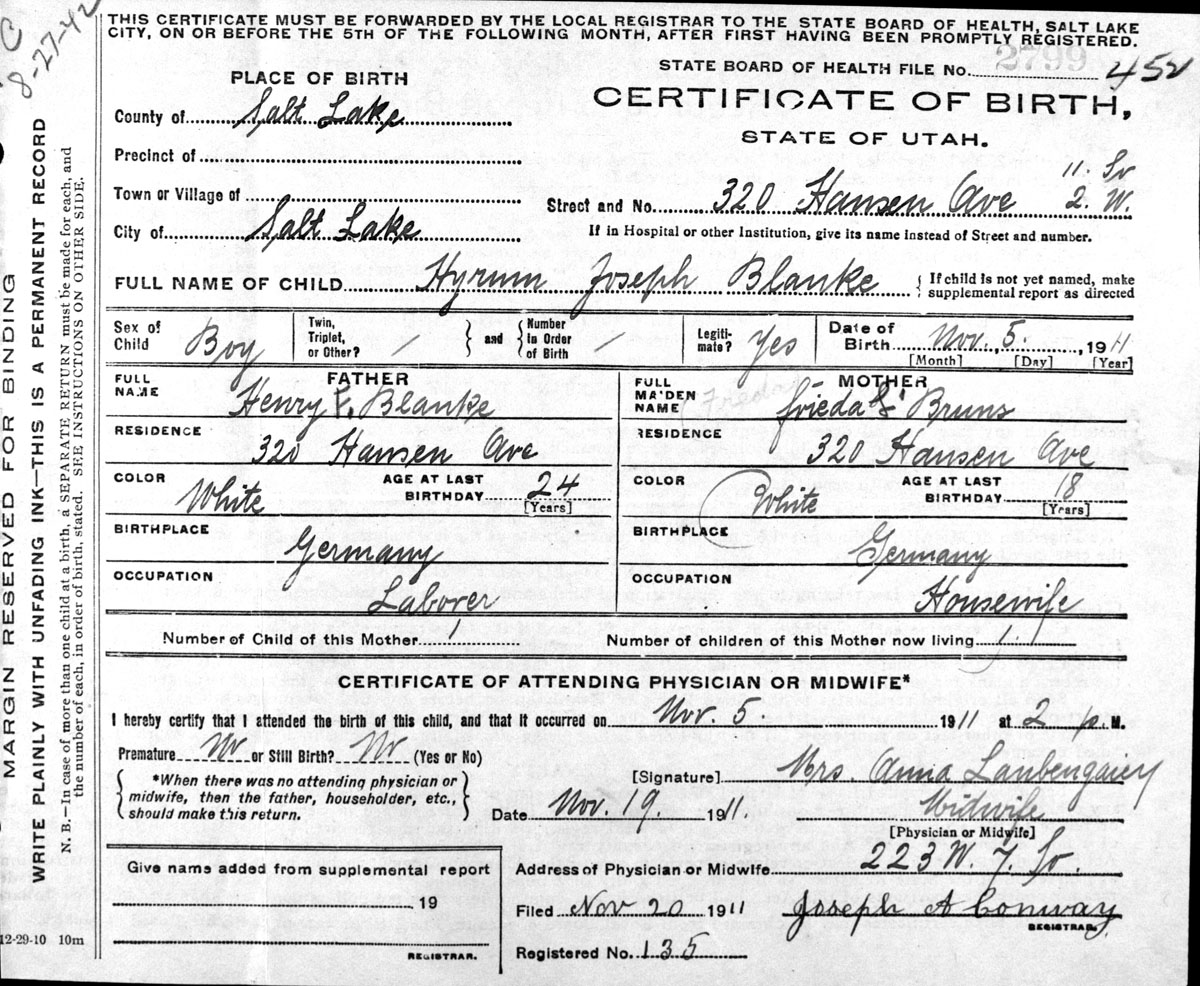 C
8-27-42
THIS CERTIFICATE MUST BE FORWARDED BY THE LOCAL REGISTRAR TO THE STATE BOARD OF HEALTH, SALT LAKE
CITY, ON OR BEFORE THE 5TH OF THE FOLLOWING MONTH, AFTER FIRST HAVING BEEN PROMPTLY REGISTERED.
MARGIN RESERVED FOR BINDING
WRITE PLAINLY WITH UNFADING INK—THIS IS A PERMANENT RECORD
N. B.—In case of more than one child at a birth, a SEPARATE RETURN must be made for each, and
the number of each, in order of birth, stated. SEE INSTRUCTIONS ON OTHER SIDE.
STATE BOARD OF HEALTH FILE No. 2799 452
PLACE OF BIRTH
CERTIFICATE OF BIRTH,
STATE OF UTAH.
County of Salt Lake
Precinct of
Town or Village of
11. So
Street and No. 320 Hansen Ave 2. W.
City of Salt Lake
If in Hospital or other Institution, give its name instead of Street and number.
FULL NAME OF CHILD Hyrum Joseph Blanke { If child is not yet named, make
supplemental report as directed
Sex of Child Boy Twin, Triplet, or Other? / } and { Number in Order of Birth / Legiti-mate? Yes Date of Birth Nov. 5. , 1911
[Month] [Day] [Year]
FATHER
FULL NAME Henry F. Blanke
RESIDENCE 320 Hansen Ave
COLOR White AGE AT LAST BIRTHDAY 24 [Years]
BIRTHPLACE Germany
OCCUPATION Laborer
MOTHER
Freda
FULL MAIDEN NAME Frieda S Bruns
RESIDENCE 320 Hansen Ave
COLOR White AGE AT LAST BIRTHDAY 18 [Years]
BIRTHPLACE Germany
OCCUPATION Housewife
Number of Child of this Mother 1 Number of children of this Mother now living 1
CERTIFICATE OF ATTENDING PHYSICIAN OR MIDWIFE*
I hereby certify that I attended the birth of this child, and that it occurred on Nov. 5. 1911 at 2 p. M.
Premature No or Still Birth? No (Yes or No)
{ *When there was no attending physician or
midwife, then the father, householder, etc.,
should make this return. }
[Signature] Mrs. Anna
Date Nov. 19. 1911. Midwife
[Physician or Midwife]
Address of Physician or Midwife 223 W. 7. So.
Filed Nov 20 1911 Joseph A Conway
REGISTRAR.
Registered No. 135
Give name added from supplemental report
19
REGISTRAR.
12-29-10 10m